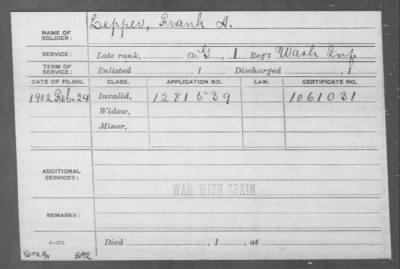 Lepper, Frank A.
NAME OF SOLDIER:
SERVICE: Late rank, Co. G, 1 Reg't Wash Inf
TERM OF SERVICE: Enlisted , 1 Discharged , 1
DATE OF FILING. CLASS. APPLICATION NO. LAW. CERTIFICATE NO.
1902 Feb. 24 Invalid, 1281539 1061031
Widow,
Minor,
ADDITIONAL SERVICES:
WAR WITH SPAIN
REMARKS:
Died , 1 , at